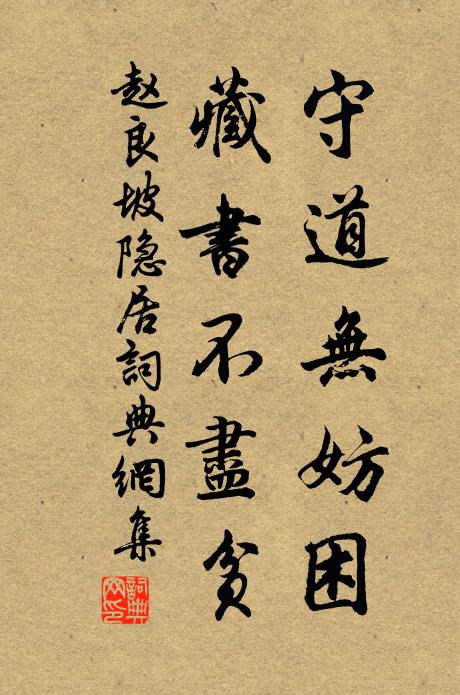 守道無妨困
藏書不盡貧
赵良坡隐居詞典網集
詞典网印